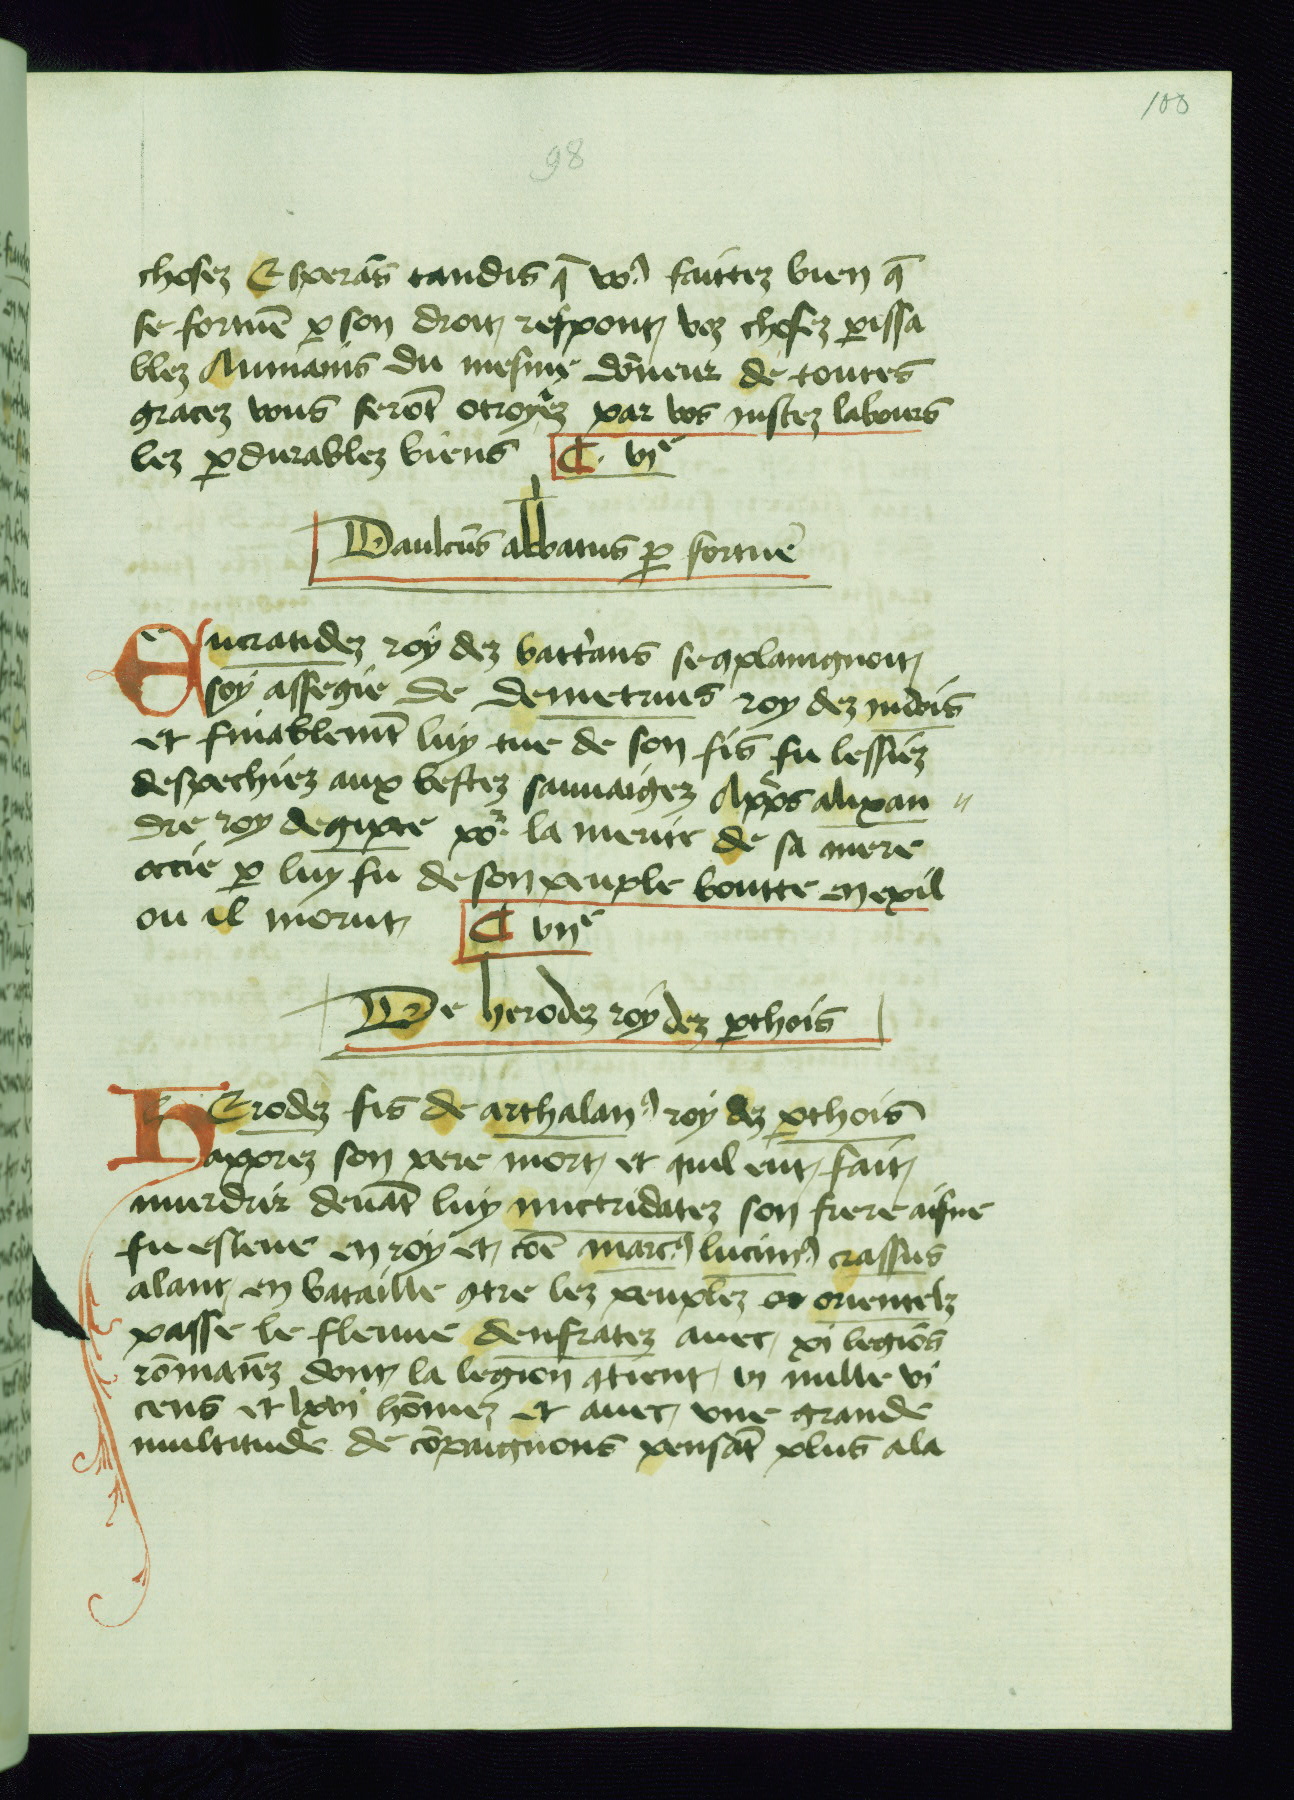 100
98
chosez Esperās tandis q̄ voꝰ faittez bien q̄
se fortuē ꝑ son droit respont voz chosez ꝑissa
blez Aumains du mesme dōneur de toutes
gracez vous serōt otroyez par vos iustez labours
lez ꝑdurablez biens C. vjᵉ
Daulcūs abbatus ꝑ fortuē
Eucratidez roy dez battrans se ꝯplaingnoit
soy assegie de demetrius roy dez indois
et finablemt̄ luy tue de son fis fu lessiez
despechiez aux bestez sauuaigez Appͬs alixan
dre roy degipte poᷣ la merite de sa mere
occie ꝑ luy fu de son peuple boutte en exil
ou il morut C vijᵉ
De herodez roy dez ꝑthois
HErodez fis de arthalanꝰ roy dez ꝑthois
apprez son pere mort et quil eut fait
murdrir deuāt luy mitridatez son frere aisne
fu esleue en roy et cōe marcꝰ lucinꝰ crassus
alant en bataille ꝯtre lez peuplez orientelz
passe le fleuue deufratez auec xi legiōs
rōmaiēz dont la legion ꝯtient vj mille vi
cens et lxvi hōmez et auec vne grande
multitude de cōpaignons pensāt plus ala